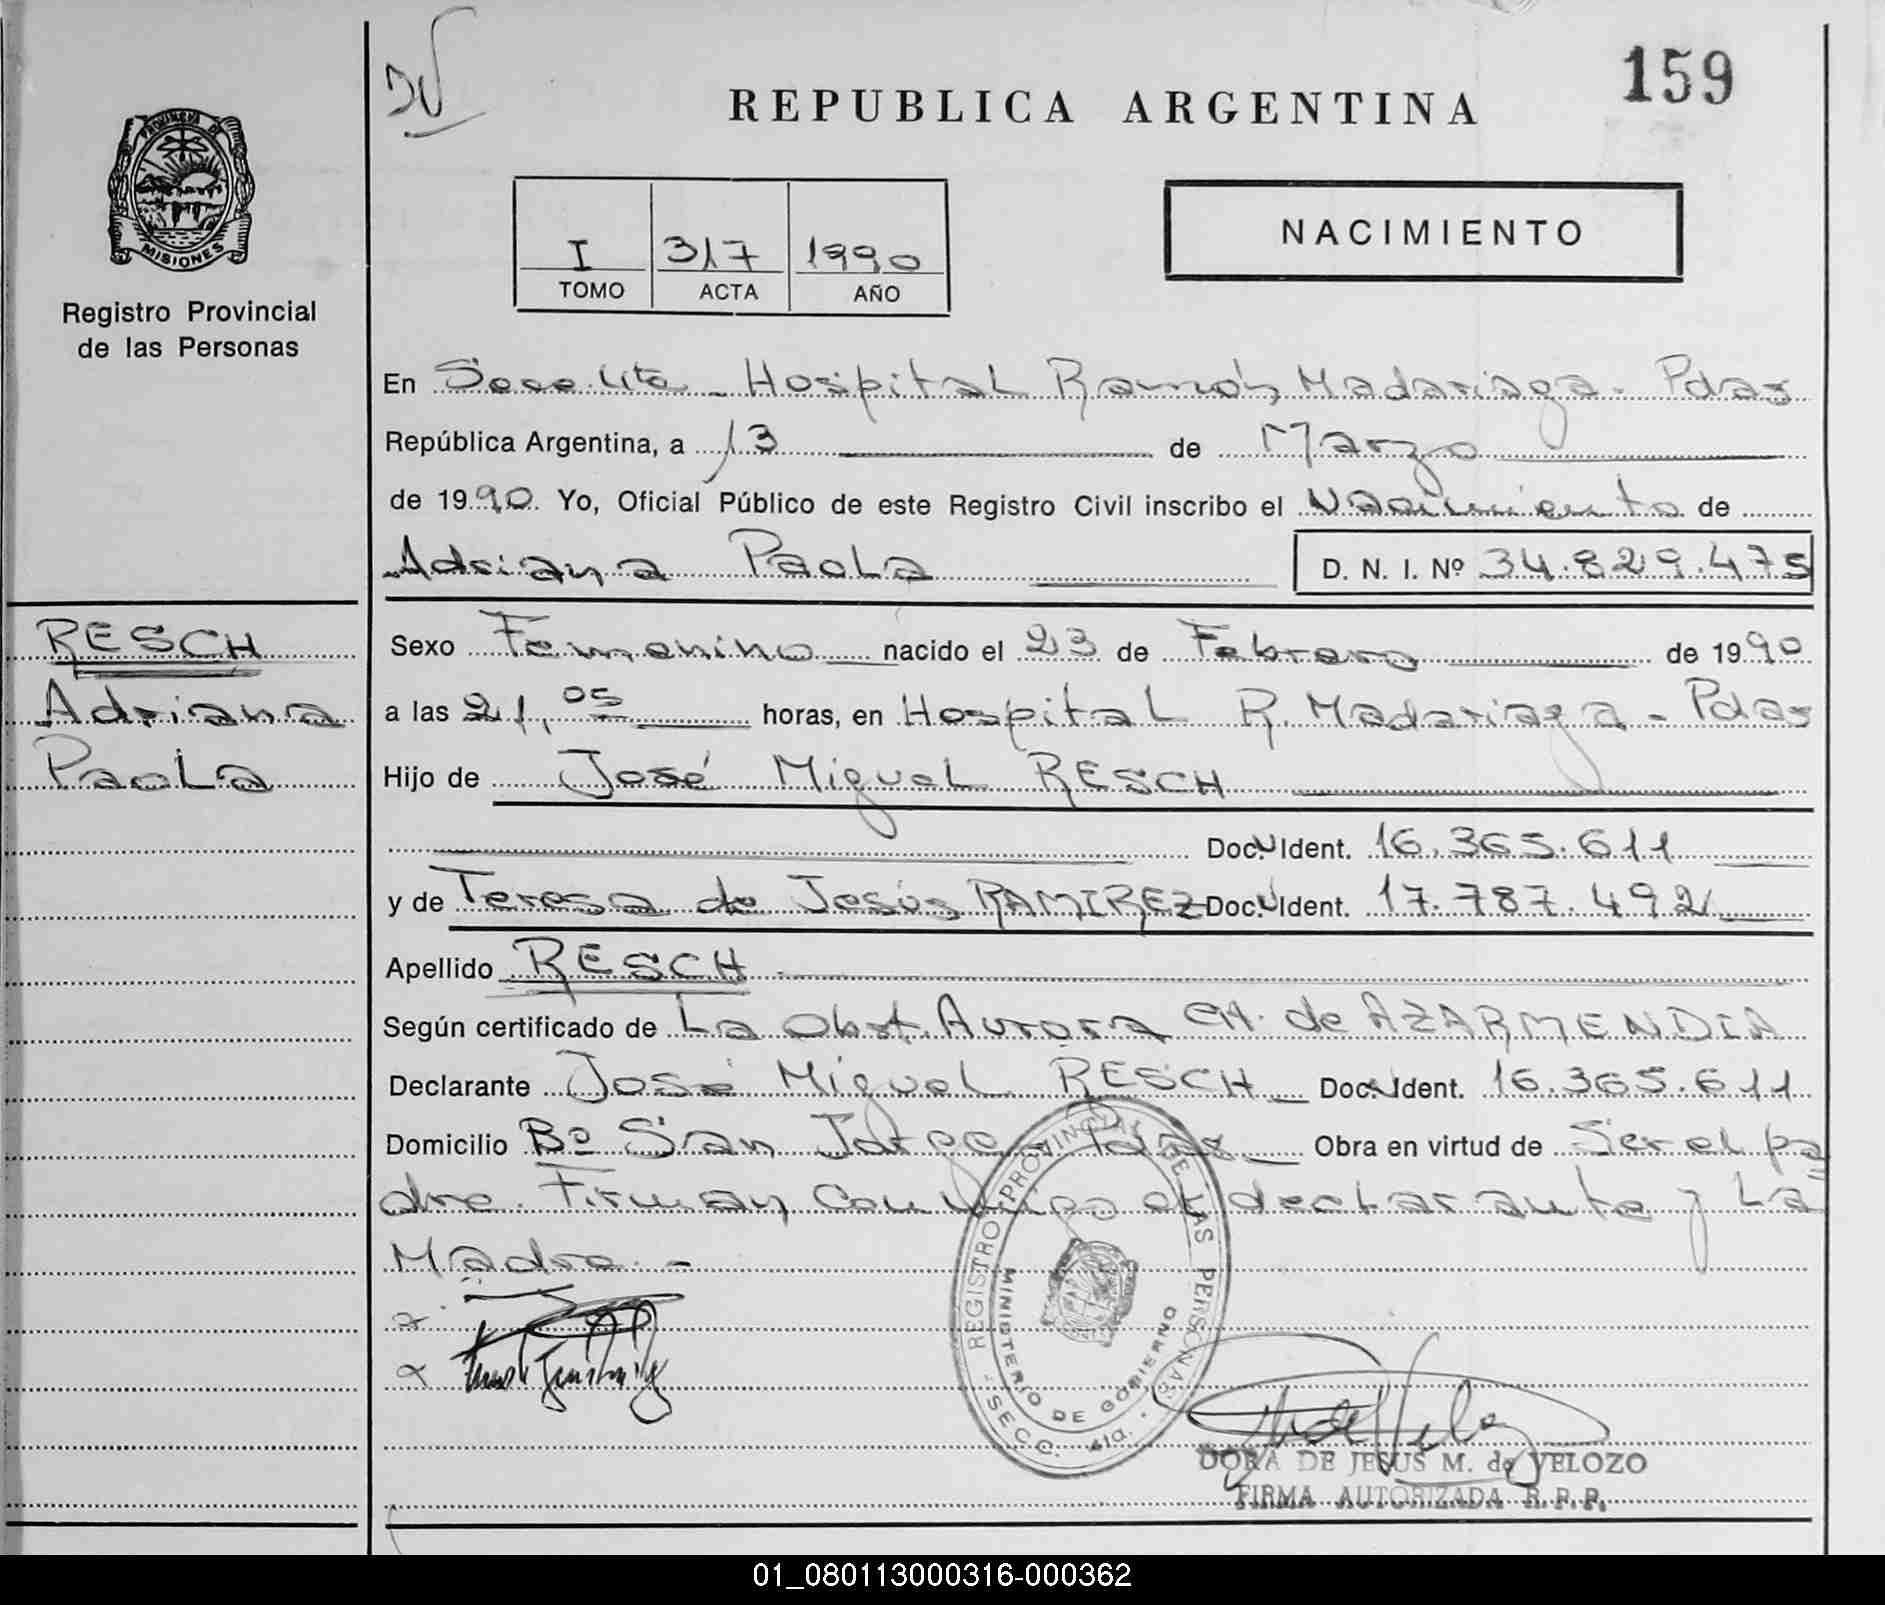 159
REPUBLICA ARGENTINA
PROVINCIA DE
MISIONES
Registro Provincial
de las Personas
NACIMIENTO
I 317 1990
TOMO ACTA AÑO
En Secc. 4ta - Hospital Ramón Madariaga - Pdas
República Argentina, a 13 de Marzo
de 1990 Yo, Oficial Público de este Registro Civil inscribo el Nacimiento de
Adriana Paola D. N. I. Nº 34.829.475
RESCH
Adriana
Paola
Sexo Femenino nacido el 23 de Febrero de 1990
a las 21,05 horas, en Hospital R. Madariaga - Pdas
Hijo de José Miguel RESCH
Doc. N Ident. 16.365.611
y de Teresa de Jesús RAMIREZ Doc. N Ident. 17.787.492
Apellido RESCH
Según certificado de La Obst. Aurora CH. de AZARMENDIA
Declarante José Miguel RESCH Doc. N Ident. 16.365.611
Domicilio Bº San Jorge - Pdas Obra en virtud de Ser el pa
dre. Firman conmigo el declarante y La
Madre. -
REGISTRO PROVINCIAL DE LAS PERSONAS
MINISTERIO DE GOBIERNO
- SECC. 4ta. -
DORA DE JESUS M. de VELOZO
FIRMA AUTORIZADA R. P. P.
01_080113000316-000362